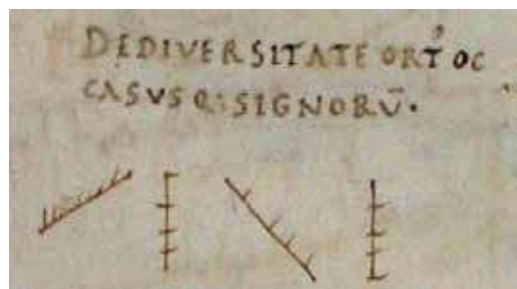 DE DIVERSITATE ORTꝰ OC
CASVSQ: SIGNORŪ.